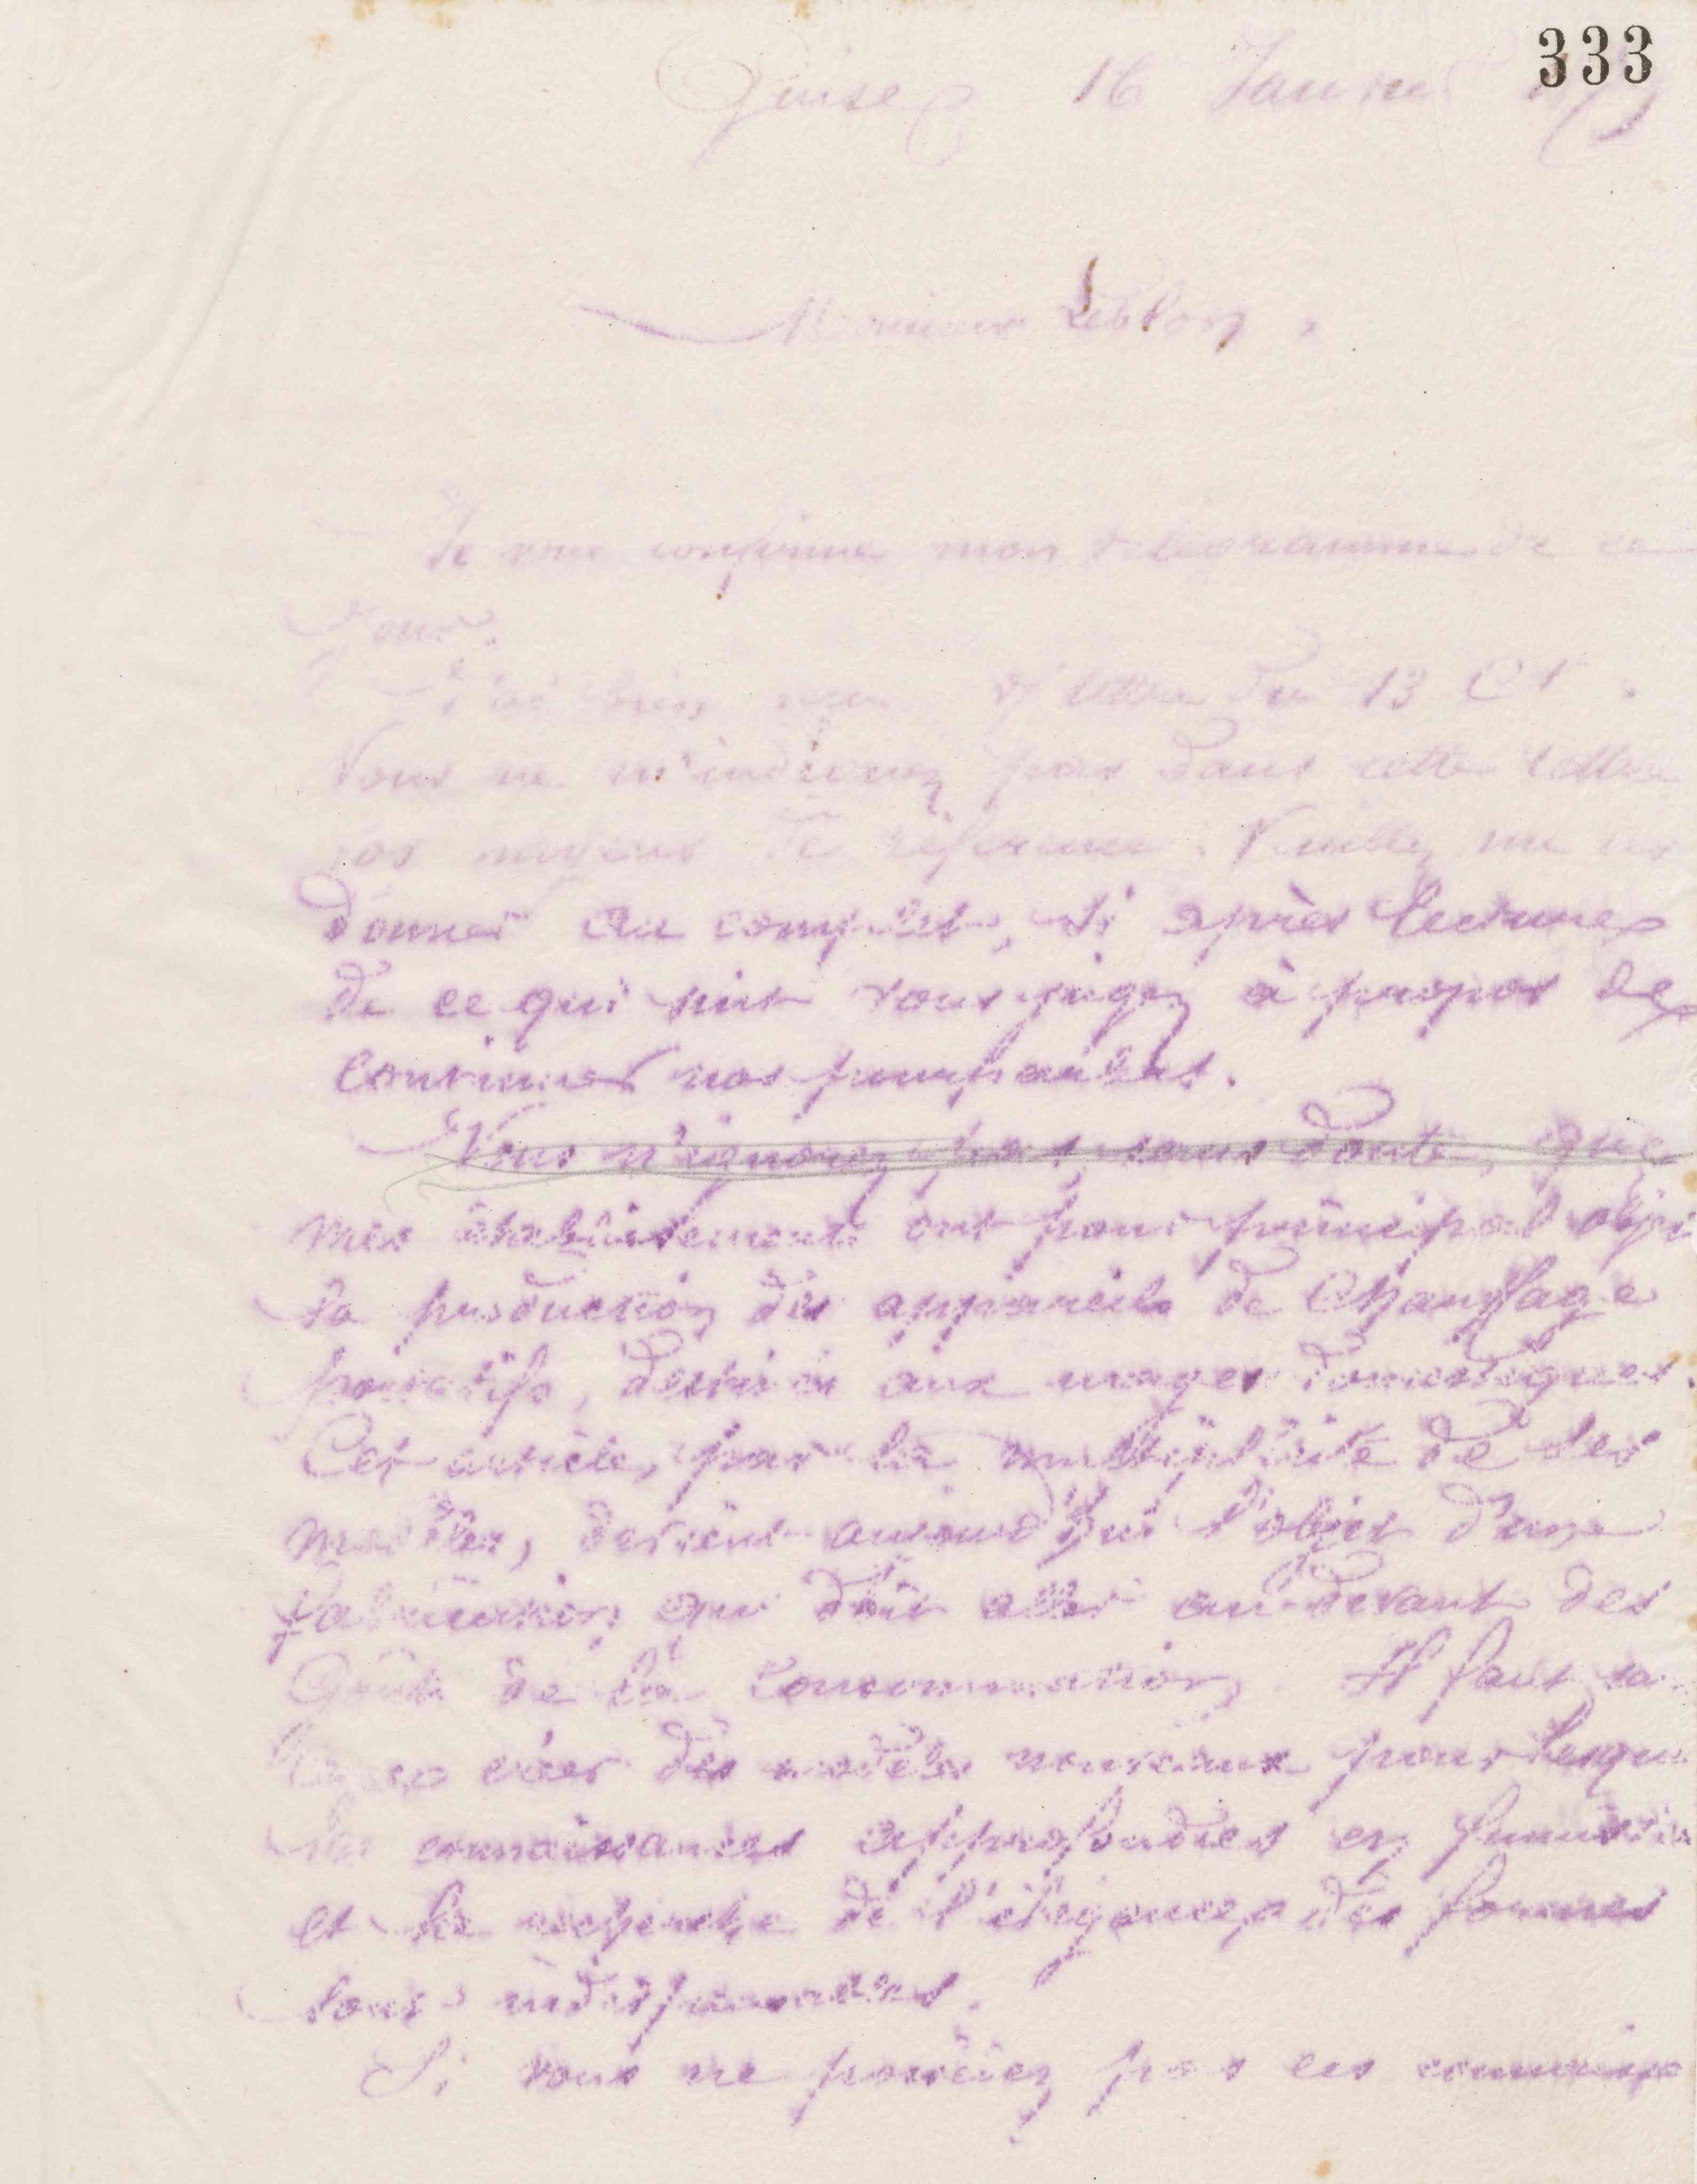 333
Guise 16 Janvier
Monsieur Leblon.
Je vous confirme mon télégramme de ce
jour.
J'ai bien reçu v/ lettre du 13 Ct.
Vous ne m'indiquez pas dans cette lettre
vos moyens de référence. Veuillez me les
donner au complet, si après lecture
de ce qui suit vous jugez à propos de
continuer nos pourparlers.
Vous n'ignorez pas, sans doute, que
mes établissements ont pour principal obje
la production des appareils de chauffage
portatifs, destinés aux usages domestiques.
Cet article, par la multiplicité de ses
modèles, devient aujourd'hui l'objet d'une
fabrication qui doit aller au-devant des
Goûts de la Consommation. Il faut sa
créer des modèles nouveaux pour lesque
les connaissances approfondies en fumisterie
et la recherche de l'élégance des formes
sont indispensables.
Si vous ne possédiez pas ces connaiss